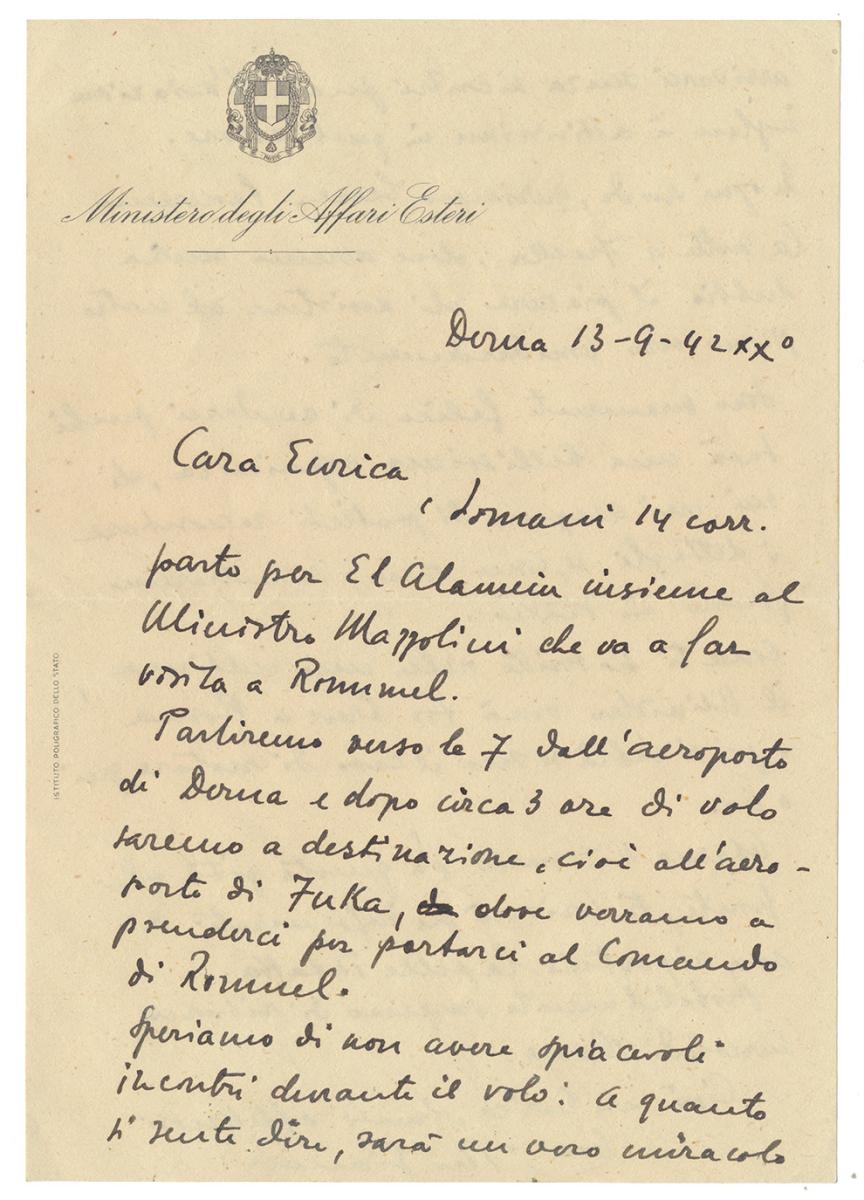 Ministero degli Affari Esteri
Derna 13-9-42 XX°
Cara Enrica
, domani 14 corr.
parto per El Alamein insieme al
Ministro Mazzolini che va a far
visita a Rommel.
Partiremo verso le 7 dall'aeroporto
di Derna e dopo circa 3 ore di volo
saremo a destinazione, cioè all'aero-
porto di Fuka, dove verranno a
prenderci per portarci al Comando
di Rommel.
Speriamo di non avere spiacevoli
incontri durante il volo: a quanto
si sente dire, sarà un vero miracolo
ISTITUTO POLIGRAFICO DELLO STATO